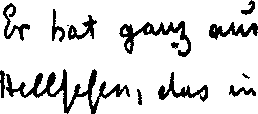 Er hat ganz aus
Hellsehen, das in